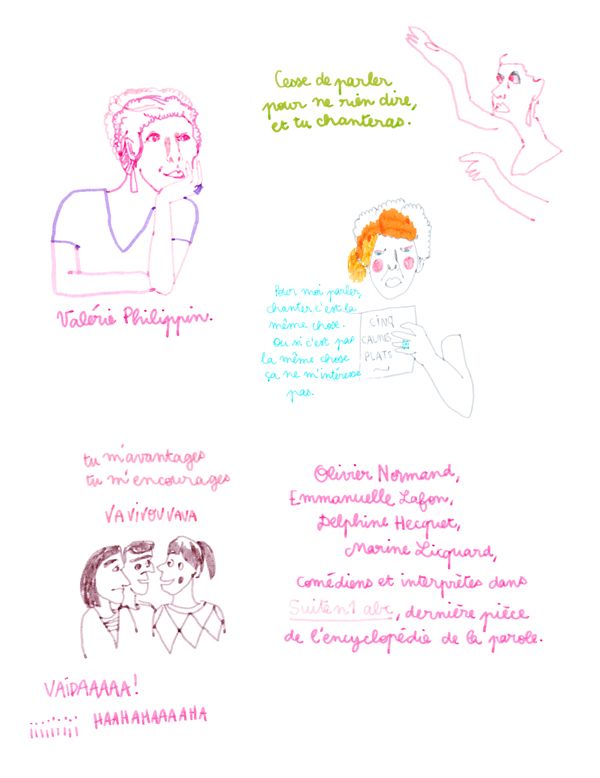 Cesse de parler
pour ne rien dire,
et tu chanteras.
Valérie Philippin.
Pour moi parler,
chanter c'est la
même chose.
Ou si c'est pas
la même chose
ça ne m'intéresse
pas.
CINQ
CALMES
PLATS
tu m'avantages
tu m'encourages
VAVIVOUVAVA
Olivier Normand,
Emmanuelle Lafon,
Delphine Hecquet,
Marine Licquard,
comédiens et interprètes dans
Suite n1 abc, dernière pièce
de l'encyclopédie de la parole.
VAÏDAAAAA!
iiiiiiiii HAAHAHAAAAHA